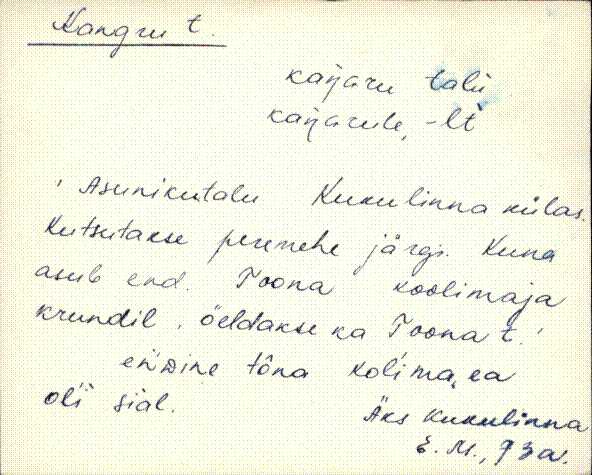 Kangru t.
kaŋaru talu
kaŋarule, -lt
'Asunikutalu Kukulinna külas.
Kutsutakse peremehe järgi. Kuna
asub end. Toona koolimaja
krundil, öeldakse ka Toona t.'
eńdine tôna kolima,ea
oli sial.
Äks Kukulinna
E. M., 93a.